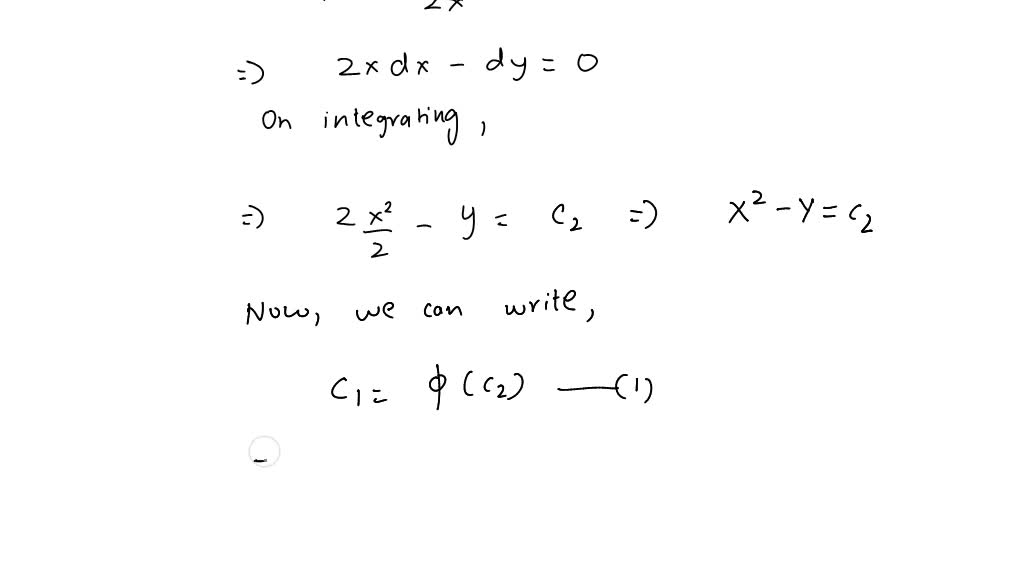 2x
=) 2x dx - dy = 0
On integrating,
=) 2 x²/2 - y = c₂ =) x² - y = c₂
Now, we can write,
C₁ = ϕ(c₂) —(1)